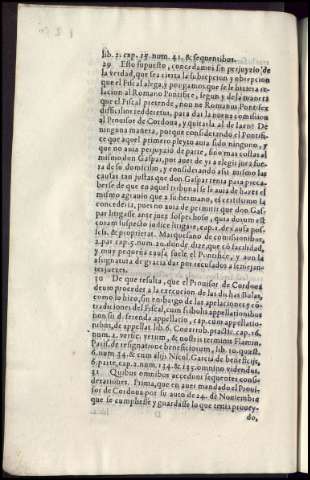 lib. 2. cap. 15. num. 41. & sequentibus.
29 Esto supuesto, concedamos sin perjuyzio de
la verdad, que sea cierta la subrepcion y obrepcion
que el Fiscal alega, y pongamos que se le hiziera re-
lacion al Romano Pontifice, segun y de la manera
que el Fiscal pretende, non ne Romanus Pontifex
difficilior redderetur, para dar la nueva comission
al Prouisor de Cordoua, y quitarla al de Iaen? De
ninguna manera, porque considerando el Pontifi-
ce que aquel primero pleyto auia sido ninguno, y
que no auia perjuyzio de parte, sino mas costas al
mismo don Gaspar, por auer de yr a elegir jura fue-
ra de su domicilio, y considerando assi mismo las
causas tan justas que don Gaspar tenia para preca-
berse de que en aquel tribunal se le auia de hazer el
mismo agrauio que a su hermano, es certissimo la
concederia, pues no auia de permitir que don Gas-
par litigasse ante juez sospechoso, quia dotum est
coram suspecto judice litigare, cap. 1. de causa pos-
sess. & proprietat. Marquesano de comissionibus,
2. par. cap. 5. num. 20. donde dize, que cõ facilidad,
y muy pequeña causa suele el Pontifice, y aun la
assignatura de gracia dar por recusados a semejan-
tes juezes.
30 De que resulta, que el Prouisor de Cordoua
deuio procedes a la execucion de las dichas letras,
como lo hizo, sin embargo de las apelaciones y cõ-
tradiciones del Fiscal, cum subolta appellationibus
non sit d. ferenda appellatio, cap. cum appellatio-
nibus, de appellat. lib. 6. Couarrub. practic. cap. 16.
num. 2. versic. yerum, & nostris terminis Flamin.
Paris. de resignatione beneficiorum, lib. 10. quæst.
6. num. 34. & cum alijs Nicol. Garcia de beneficijs,
6. parte, cap. 2. num. 134. & 135. omnino videndus.
31 Quibus omnibus accedunt sequentes consi-
derationes. Prima, que en auer mandado el Proui-
sor de Cordoua por su auto de 24. de Nouiembre
que se cumpliesse y guardasse lo que tenia proueydo,